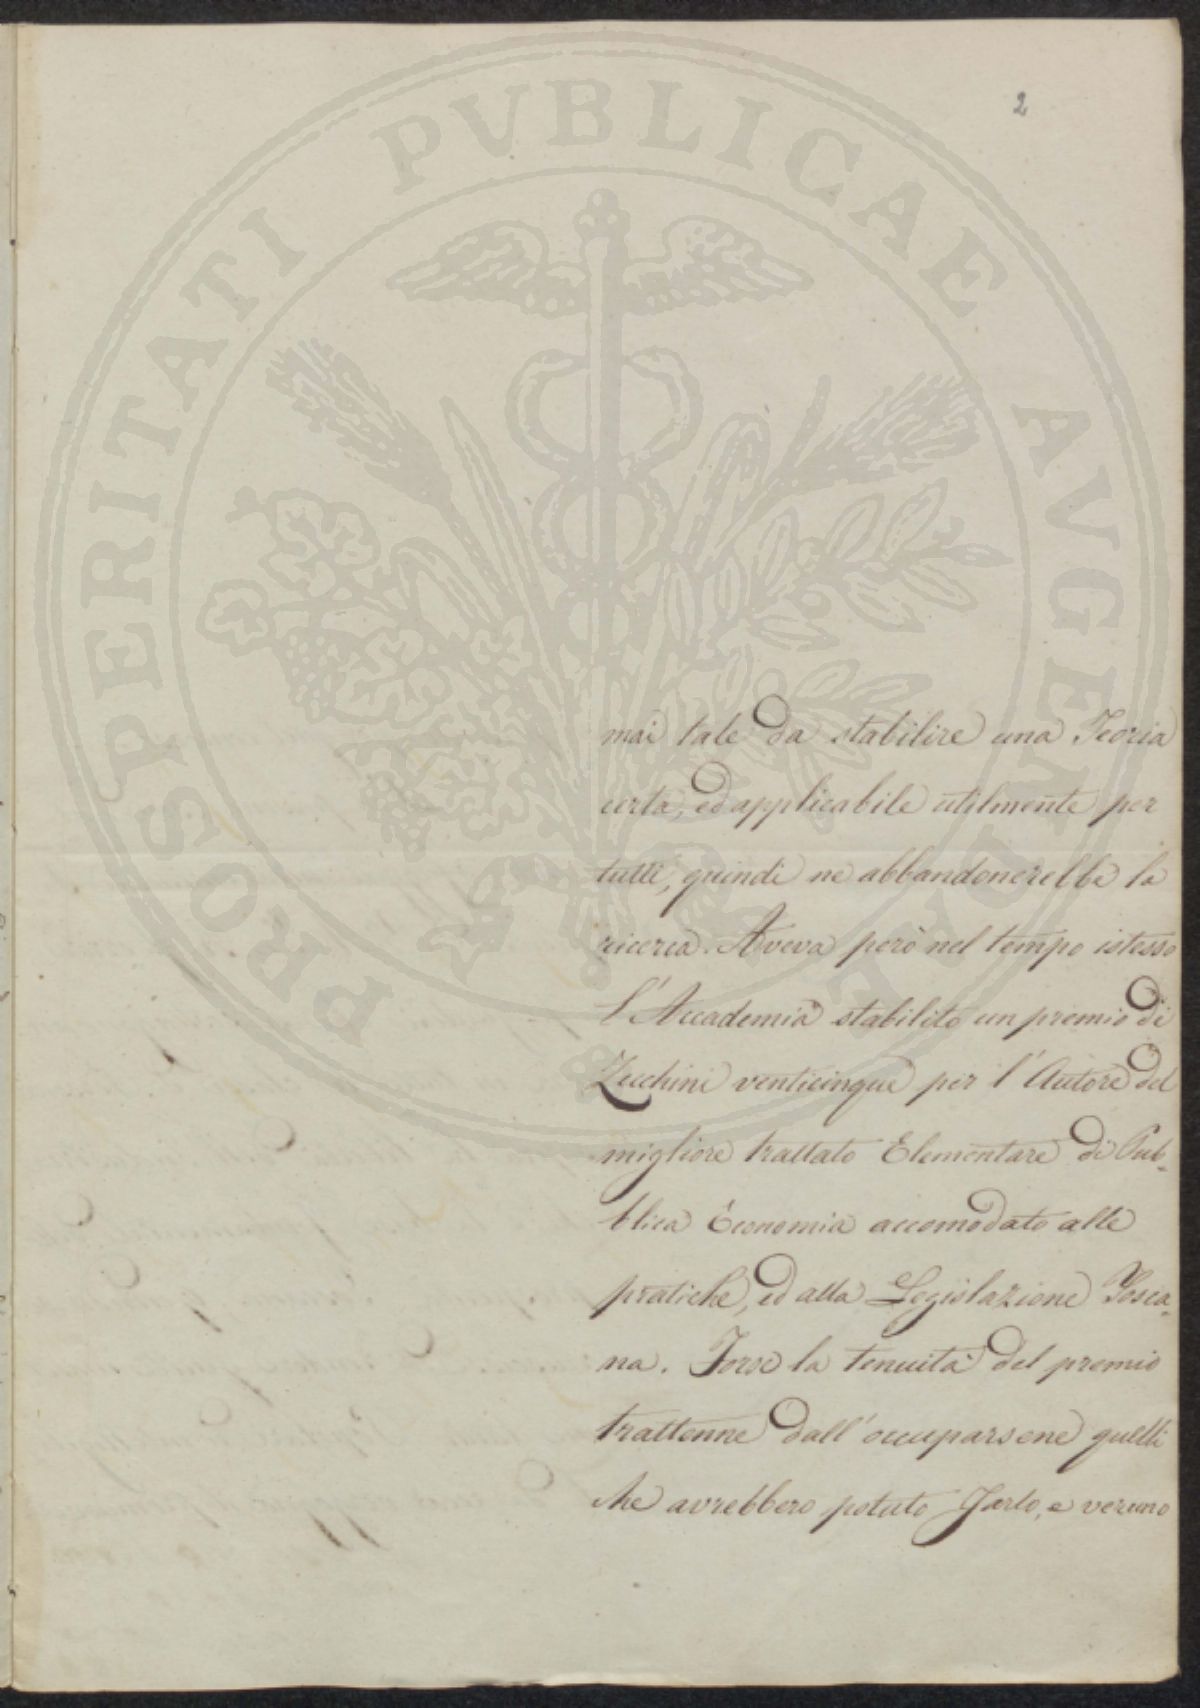 2
PROSPERITATI PUBLICAE AVGENDAE
mai tale da stabilire una Teoria
certa, ed applicabile utilmente per
tutti, quindi ne abbandonerebbe la
ricerca. Aveva però nel tempo istesso
l'Accademia stabilito un premio di
Zecchini venticinque per l'Autore del
migliore trattato Elementare di Pub-
blica Economia accomodato alle
pratiche, ed alla Legislazione Tosca-
na. Forse la tenuità del premio
trattenne dall'occuparsene quelli
che avrebbero potuto farlo, e veruno